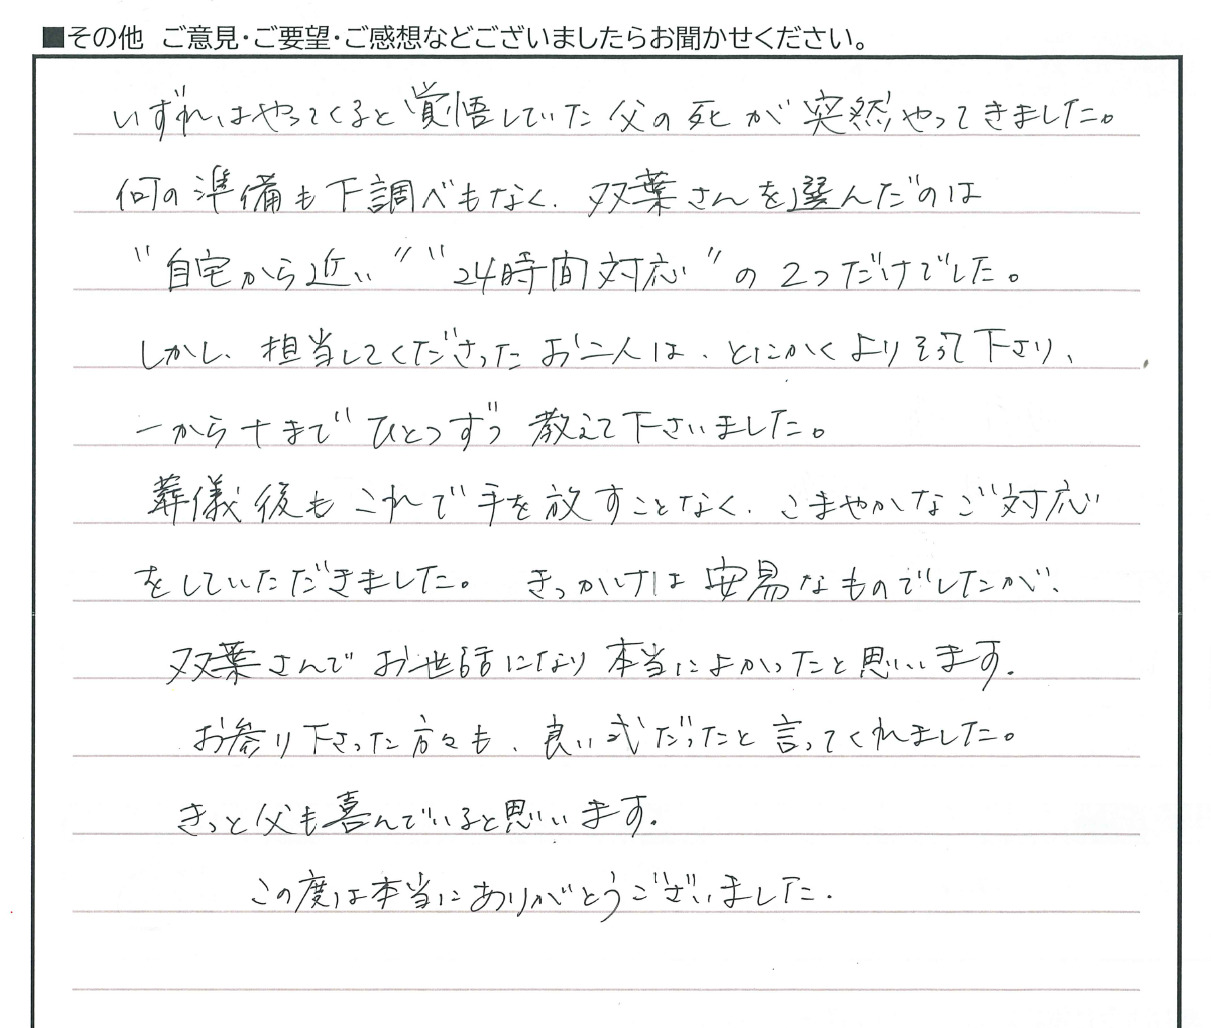 ■その他 ご意見・ご要望・ご感想などございましたらお聞かせください。
いずれはやってくると覚悟していた父の死が突然やってきました。
何の準備も下調べもなく、双葉さんを選んだのは
“自宅から近い”“24時間対応”の2つだけでした。
しかし、担当してくださったお二人は、とにかくよりそって下さり、
一から十までひとつずつ教えて下さいました。
葬儀後もこれで手を放すことなく、こまやかなご対応
をしていただきました。きっかけは安易なものでしたが、
双葉さんでお世話になり本当によかったと思います。
お参り下さった方々も、良い式だったと言ってくれました。
きっと父も喜んでいると思います。
この度は本当にありがとうございました。